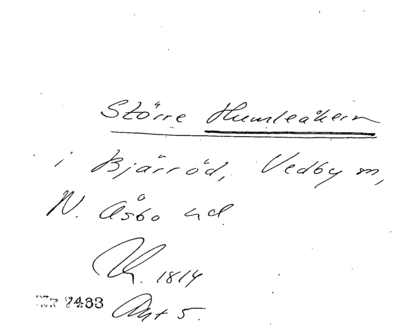 Större Humleåkern
i Bjärröd, Vedby
N. Åsbo hd.
1814
Nr 7433
Akt 5.